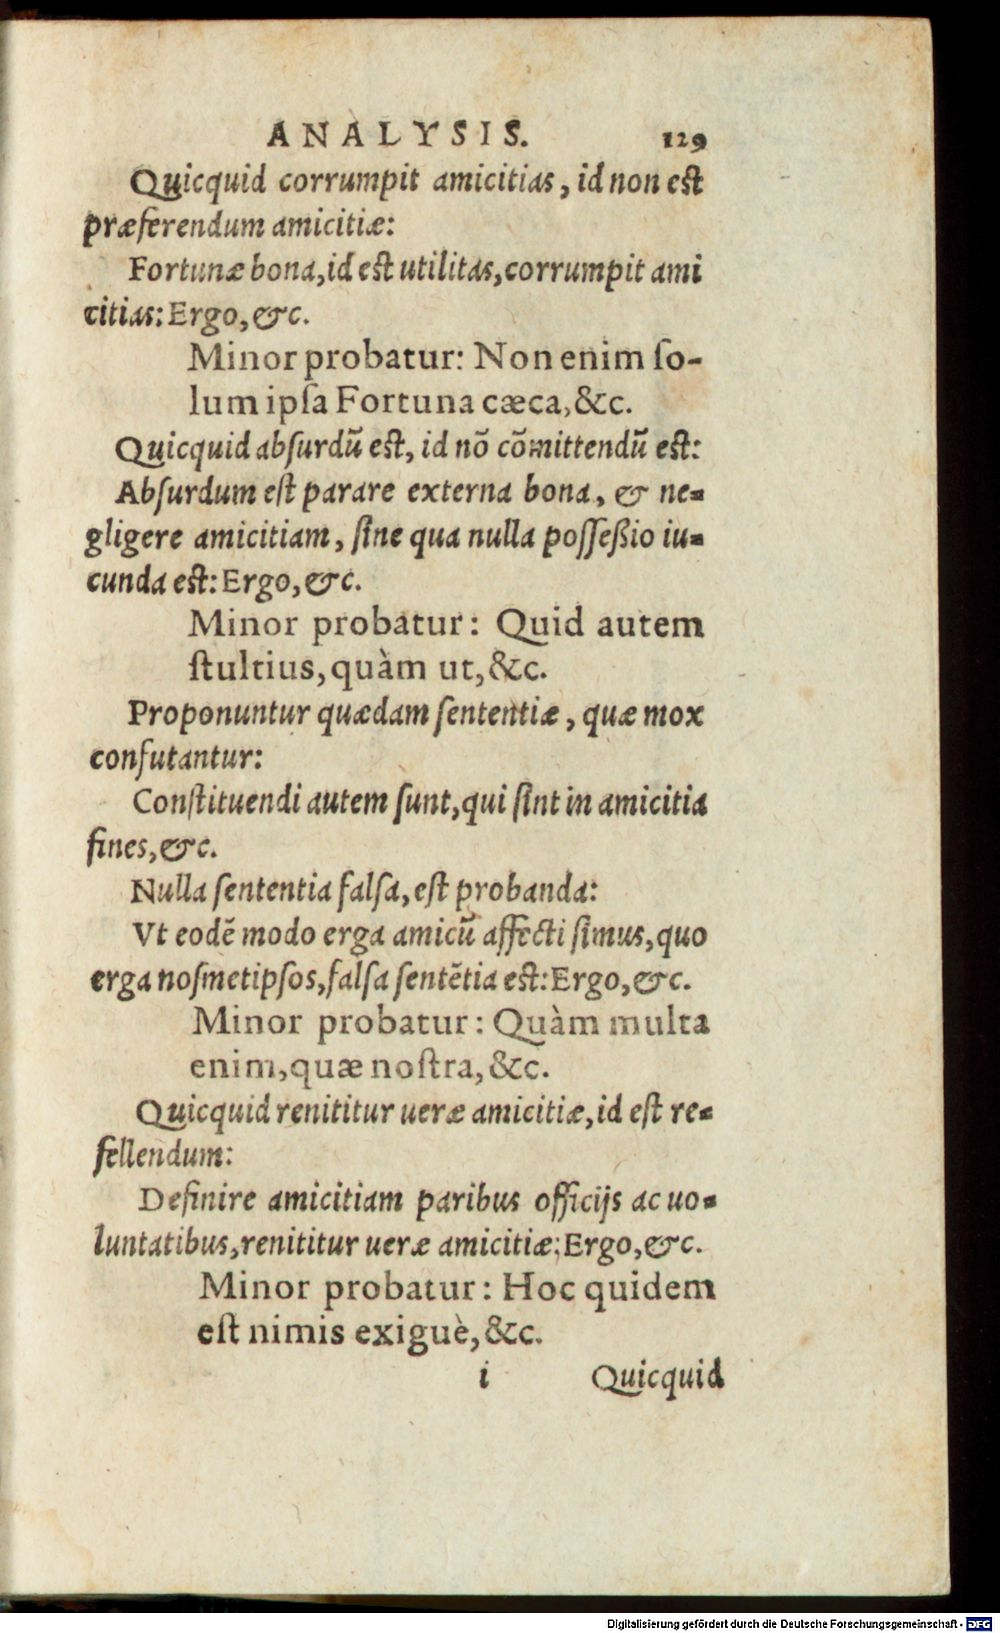 ANALYSIS. 129
Quicquid corrumpit amicitias, id non est
præferendum amicitiæ:
Fortunæ bona, id est utilitas, corrumpit ami
citias: Ergo, &c.
Minor probatur: Non enim ſo-
lum ipſa Fortuna cæca, &c.
Quicquid abſurdū est, id nō cōmittendū est:
Abſurdum eſt parare externa bona, & ne-
gligere amicitiam, ſine qua nulla poſſeßio iu-
cunda est: Ergo, &c.
Minor probatur: Quid autem
ſtultius, quàm ut, &c.
Proponuntur quædam ſententiæ, quæ mox
confutantur:
Conſtituendi autem ſunt, qui ſint in amicitia
fines, &c.
Nulla ſententia falſa, eſt probanda:
Vt eodē modo erga amicū affecti ſimus, quo
erga noſmetipſos, falſa ſentētia est: Ergo, &c.
Minor probatur: Quàm multa
enim, quæ noſtra, &c.
Quicquid renititur ueræ amicitiæ, id eſt re-
fellendum:
Definire amicitiam paribus officijs ac uo-
luntatibus, renititur ueræ amicitiæ: Ergo, &c.
Minor probatur: Hoc quidem
eſt nimis exiguè, &c.
i Quicquid
Digitalisierung gefördert durch die Deutsche Forschungsgemeinschaft - DFG